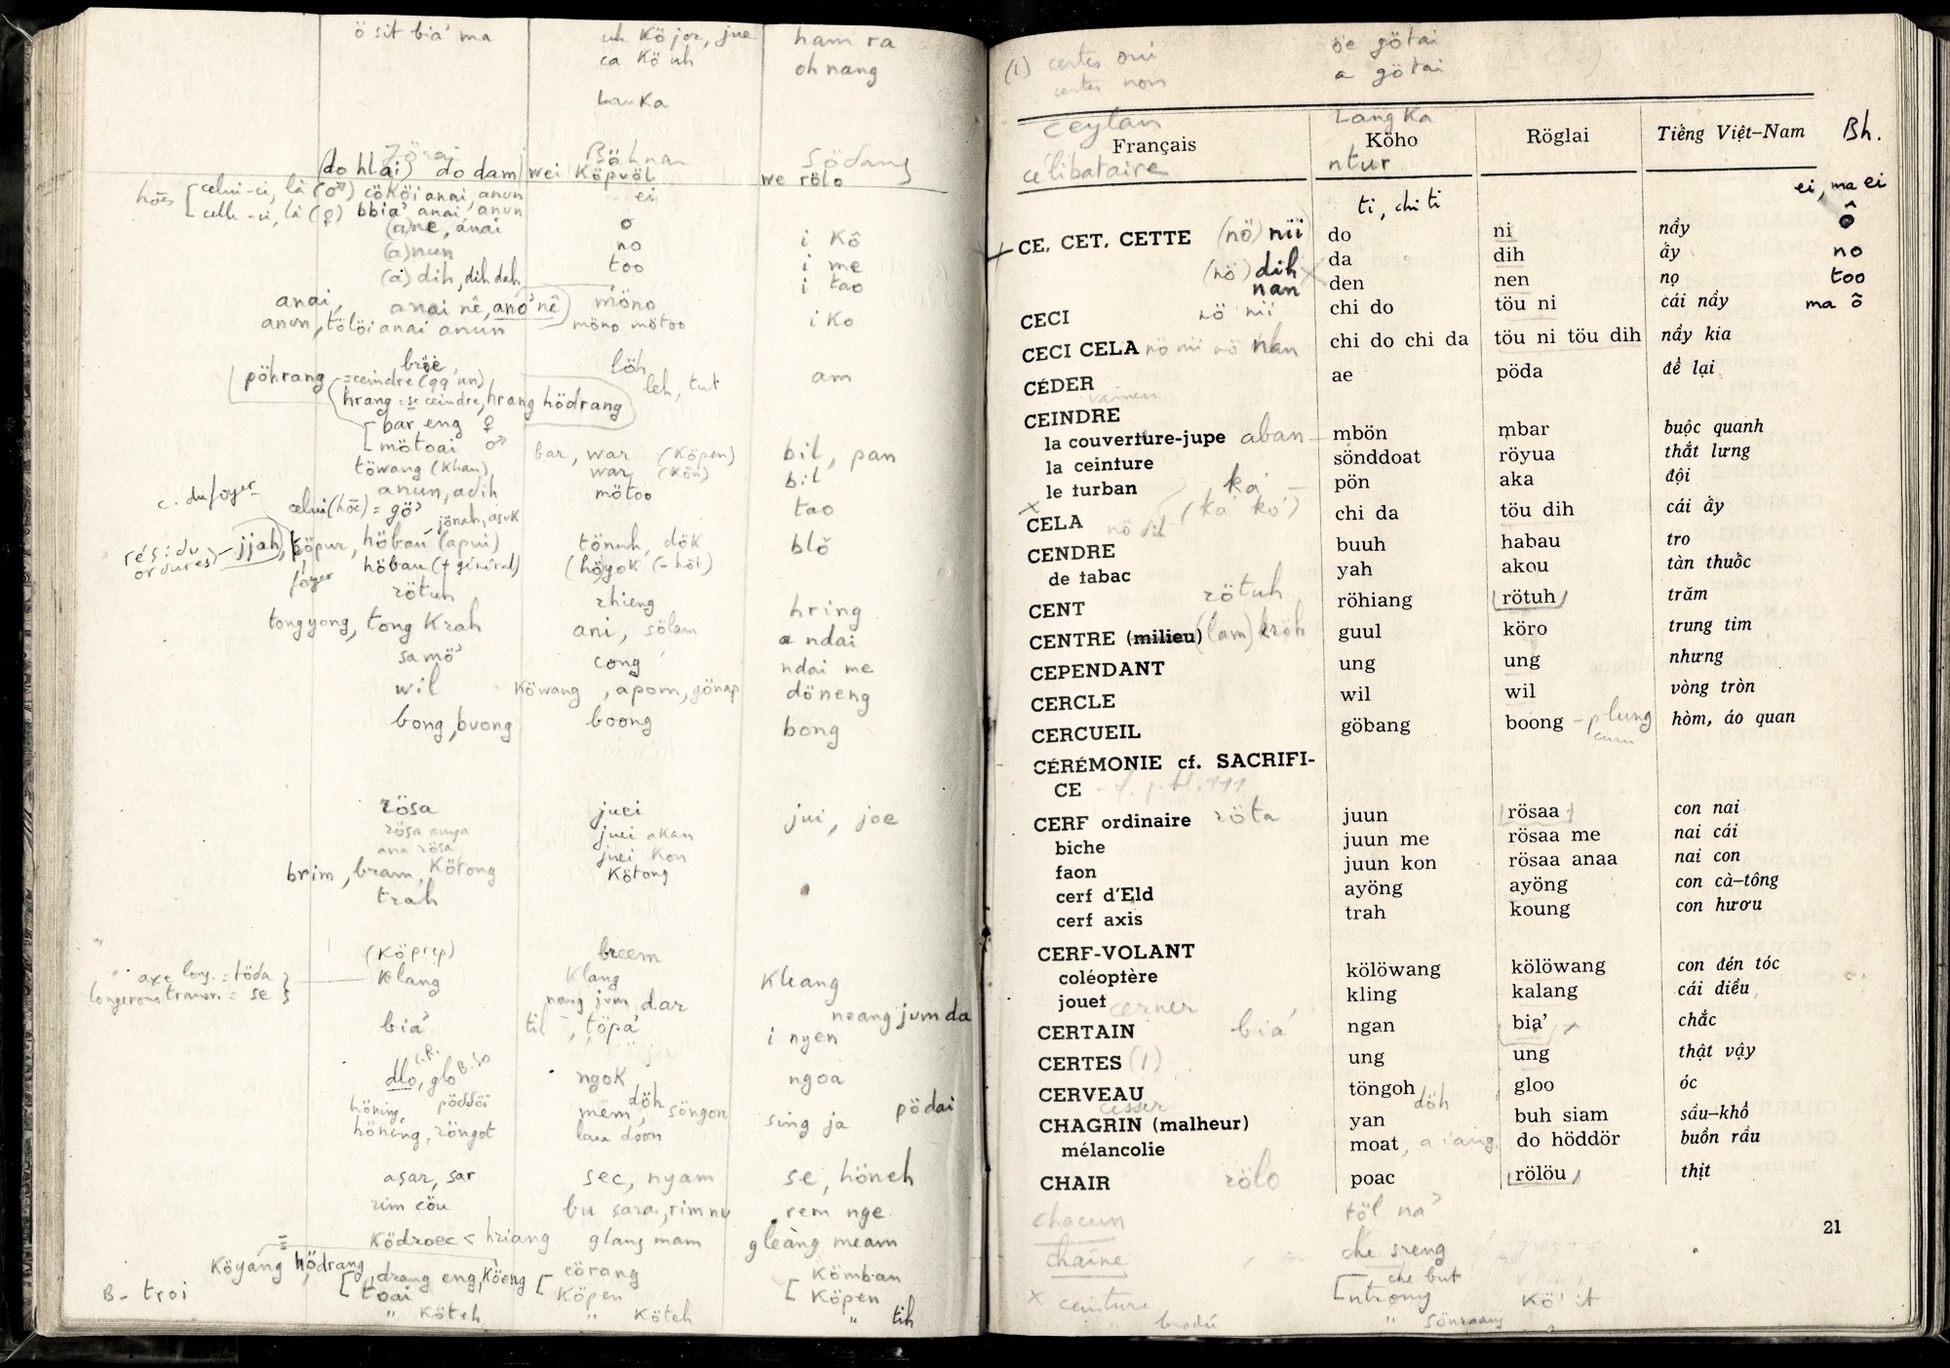 ö sit bia' ma | uh Kö jor, jue | ham ra
ca Kö uh | oh nang
Lanka
Jörai | Bähnar | Södang
(do hlai) do dam | wei Köpvöl | we rölo
hoes [ celui-ci, là (♂) cököi anai, anun | ei
celle-ci, là (♀) bbia' anai, anun
(a)ne, anai | o | i Kô
(a)nun | no | i me
(a) dih, dih deh | too | i tao
anai, anai nê, anö' nê | möno
anun, tölöi anai anun | möno mötoo | i Ko
bröè | löh
pöhrang =ceindre (qq'un) | leh, tut | am
hrang = se ceindre, hrang hödrang
[ bar, eng ♀
mötoai ♂ | bar, war (Köpen) | bil, pan
töwang (Khan), | war (Kön) | bil
c. du foyer | anun, adih | mötoo | tao
celui (hoc) = gö' jönah, asuk
résidu ordures - jjah,Köpur, höbau (apui) | tönuh, dök | blŏ
foyer | höbau (+ général) | (höyok (- höt)
rötuh | rhieng | hring
tongyong, tong Krah | ani, sölam | a ndai
samö' | cong | ndai me
wil | Köwang, apom, gönap | döneng
bong, buong | boong | bong
rösa | juei | jui, joe
rösa anya | juei akan
ana rösa | juei Kon
brim, bram, Kötong | Kötong
trah
(Köprep) | breem
axe long. = töda
longerons transv. = se | Klang | Klang | Kleang
neng jum dar | neang jum da
bia' | til, töpa' | i nyen
dlo, glo | ngok | ngoa
höning, pöddöi | mem, döh söngon | sing ja pödai
höning, röngot | lau doon
asar, sar | sec, nyam | se, höneh
rim cöu | bu sara, rim nu | rem nge
Ködroec < hriang | glang mam | gleàng meam
Köyang hödrang, [ drang eng, Köeng | [ cörang | [ Kömban
B- troi | toai | Köpen | Köpen
" Köteh | " Köteh | " tih
(1) certes oui | öe götai
certes non | a götai
Ceylan | Langka
Français | Köho | Röglai | Tiếng Việt–Nam | Bh.
célibataire | ntur
ti, chi ti | ei, ma ei
CE, CET, CETTE (nö) nii | do | ni | nầy | ô
da | dih | ấy | no
(nö) dih nan | den | nen | nọ | too
CECI nö nii | chi do | töu ni | cái nầy | ma õ
CECI CELA nö nii nö nan | chi do chi da | töu ni töu dih | nầy kia
CÉDER | ae | pöda | để lại
CEINDRE
la couverture-jupe aban | mbön | mbar | buộc quanh
la ceinture | sönddoat | röyua | thắt lưng
le turban ka | pön | aka | đội
CELA nö dih (ka kö') | chi da | töu dih | cái ấy
CENDRE | buuh | habau | tro
de tabac | yah | akou | tàn thuốc
CENT rötuh | röhiang | rötuh | trăm
CENTRE (milieu) (lam) kröh | guul | köro | trung tim
CEPENDANT | ung | ung | nhưng
CERCLE | wil | wil | vòng tròn
CERCUEIL | göbang | boong - plung | hòm, áo quan
CÉRÉMONIE cf. SACRIFI-
CE
CERF ordinaire röta | juun | rösaa | con nai
biche | juun me | rösaa me | nai cái
faon | juun kon | rösaa anaa | nai con
cerf d'Eld | ayöng | ayöng | con cà–tông
cerf axis | trah | koung | con hươu
CERF-VOLANT
coléoptère | kölöwang | kölöwang | con đén tóc
jouet | kling | kalang | cái diều
cerner
CERTAIN bia' | ngan | bia' | chắc
CERTES (1) | ung | ung | thật vậy
CERVEAU | töngoh | gloo | óc
cesser | döh
CHAGRIN (malheur) | yan | buh siam | sầu–khổ
mélancolie | moat, a iang | do höddör | buồn rầu
CHAIR rölo | poac | rölöu | thịt
chacun | töl na'
21
chaîne | che sreng
che but
x ceinture | ntrony | Kö' it
brodé | " sönraang